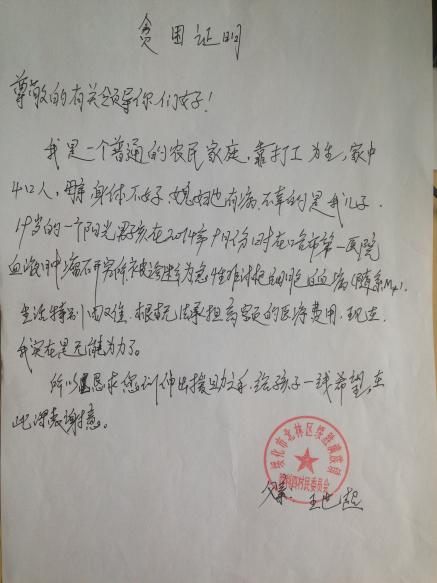 贫困证明
尊敬的有关领导你们好！
我是一个普通的农民家庭，靠打工为生，家中
4口人，身体不好，媳妇也有病，不幸的是我儿子，
19岁的一个阳光男孩在2014年9月份时在哈市第一医院
血液肿瘤研究所被确诊为急性非淋巴细胞白血病
生活特别困难，根本无法承担高额的医疗费用，现在
我实在是无能为力了。
所以恳求您们伸出援助之手，给孩子一线希望，在
此深表谢意。
绥化市北林区绥胜满族镇
村民委员会